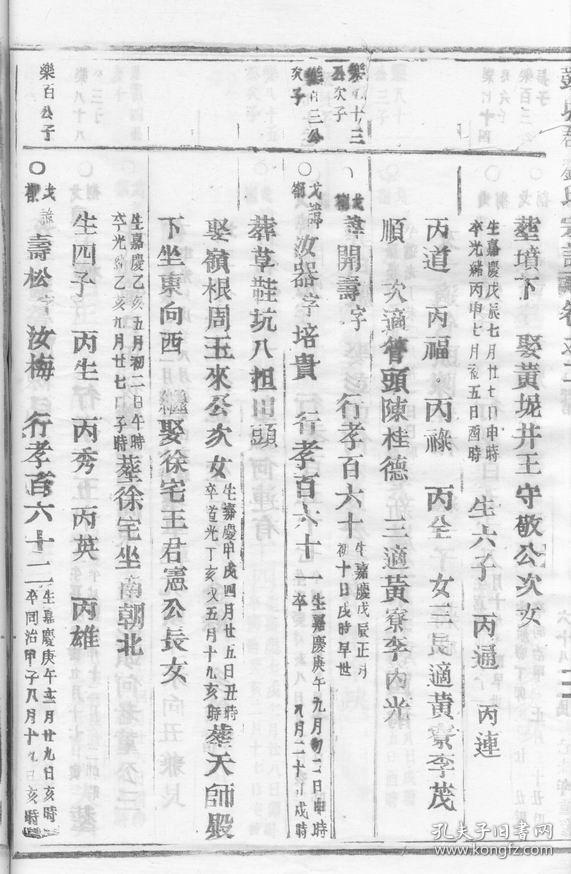 氏宗譜卷之二
樂百三公次子
葬墳下 娶黃坭井王守敬公次女
生嘉慶戊辰七月廿七日申時
卒光緒丙申七月五日酉時
生六子 丙通 丙連
丙道 丙福 丙祿 丙全 女三長適黃寮李茂
順 次適管頭陳桂德 三適黃寮李內光
諱開壽字 行孝百六十
生嘉慶戊辰正月
初十日戌時早世
樂百三公次子
諱汝器字培貴 行孝百六十一
生嘉慶庚午九月初二日申時
卒 八月二十 日戌時
葬草鞋坑八担田頭
娶嶺根周玉來公次女
生嘉慶甲戌四月廿五日丑時
卒道光丁亥 五月十九亥時
葬天師殿
下坐東向西 繼娶徐宅王君憲公長女
生嘉慶乙亥五月初二日午時
卒光緒乙亥九月廿七日子時
葬徐宅坐南朝北
生四子 丙生 丙秀 丙英 丙雄
樂百 公子
諱壽松字汝梅 行孝百六十二
生嘉慶庚午十二月廿九日亥時
卒同治甲子八月十九日亥時
孔夫子旧书网
www.kongfz.com